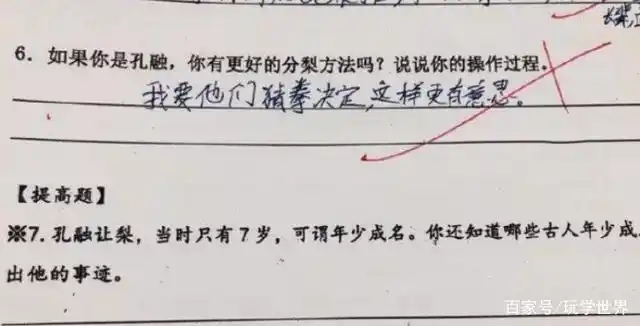 6. 如果你是孔融，你有更好的分梨方法吗？说说你的操作过程。
我要他们猜拳决定，这样更有意思。
【提高题】
※7. 孔融让梨，当时只有7岁，可谓年少成名。你还知道哪些古人年少成
出他的事迹。
百家号/玩学世界